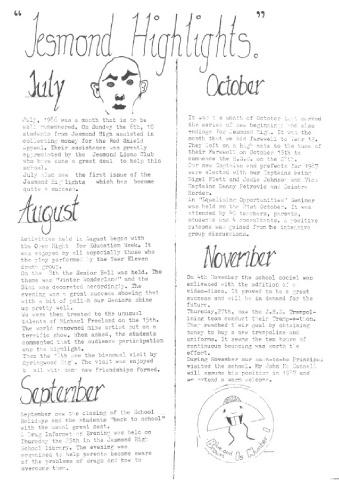 "Jesmond Highlights."
July
July, 1986 was a month that is to be
well remembered. On Sunday the 6th, 18
students from Jesmond High assisted in
collecting money for the Red Shield
Appeal. Their assistance was greatly
appreciated by the Jesmond Lions Club
who have done a great deal to help this
school.
July also saw the first issue of the
Jesmond Highlights which has become
quite a success.
August
Activities held in August began with
the Open Night for Education Week. It
was enjoyed by all especially those who
the play performed by the Year Eleven
drama group.
On the 8th the Senior Ball was held. The
theme was "Winter Wonderland" and the
was decorated accordingly. The
evening was a great success showing that
with a bit of polish our Seniors shine
up pretty well.
We were then treated to the unusual
talents of Michael Freeland on the 15th.
The world renowned mime artist put on a
terrific show. When asked, the students
commented that the audience participation
was the highlight.
Then the was the biannual visit by
Springwood High. The visit was enjoyed
by all with many new friendships formed.
September
September saw the closing of the School
Holidays and the students "back to school"
with the usual great zest.
A Drug Information Evening was held on
Thursday the 25th in the Jesmond High
School library. The evening was
organised to help parents become aware
of the problems of drugs and how to
overcome them.
October
It was a month of October that marked
the series of new beginnings and also
endings for Jesmond High. It was the
month that we bid farewell to Year 12.
They left on a high note to the tune of
their Farewell on October 15th to
commence the H.S.C. on the
Our new Captains and prefects for 1987
were elected with our Captains being
Nigel Piatt and Jodie Johnson and Vice
Captains Danny Petrovic and Deidre
Borden.
An "Equalising Opportunities" Seminar
was held on the 31st October. It was
attended by 40 teachers, parents,
students and consultants, a positive
outcome was gained from the intensive
group discussions.
November
On 4th November the school social was
enlivened with the addition of a
video-disco. It proved to be a great
success and will be in demand for the
future.
Thursday, 27th, saw the J.H.S. Trampol-
ining team conduct their Tramp-a-thon.
They reached their goal by obtaining
money to buy a new trampoline and
uniforms. It seems the ten hours of
continuous bouncing was worth the
effort.
During November our Principal
visited the school. Mr John
will assume his position in 1987 and
we extend a warm welcome.